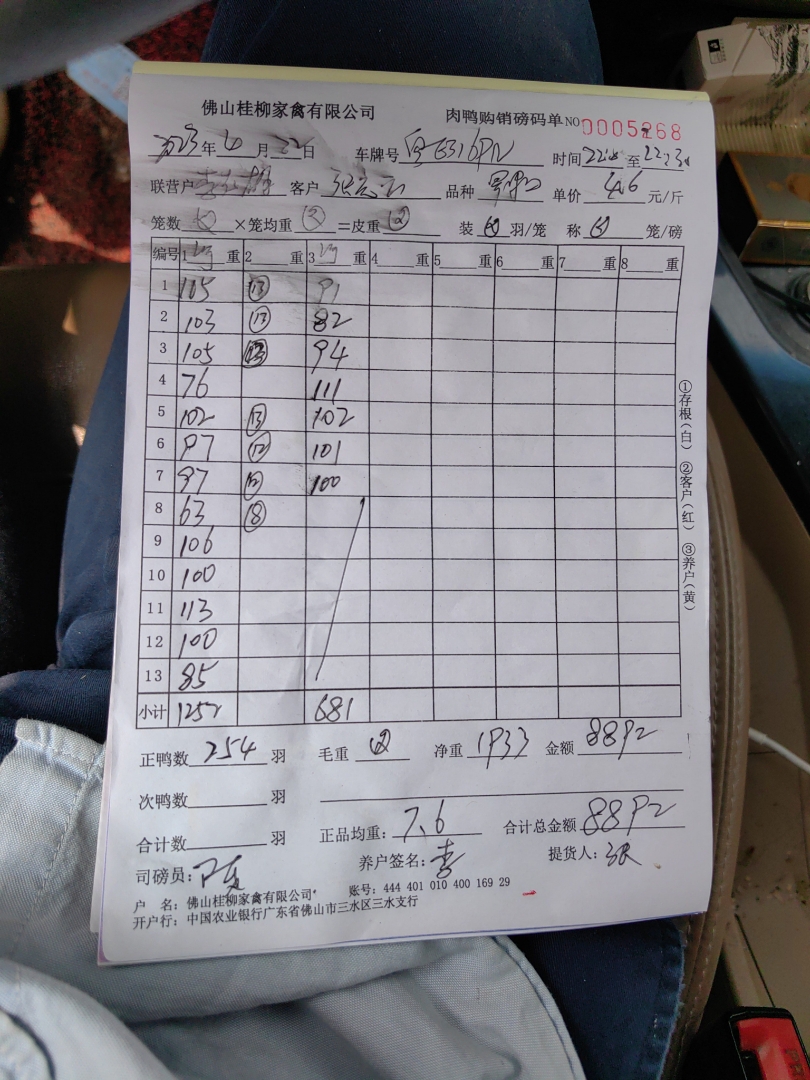 佛山桂柳家禽有限公司 肉鸭购销磅码单 NO 0005268
2023年 月22日 车牌号 粤E6316PN 时间 至
联营户 客户 品种 单价4.6元/斤
笼数 ×笼均重 =皮重 装 羽/笼 称 笼/磅
编号 1 重 2 重 3 重 4 重 5 重 6 重 7 重 8 重
1 105 ⑬ 91
2 103 ⑬ 82
3 105 94
4 76 111
5 102 ⑬ 102
6 97 ⑫ 101
7 97 ⑫ 100
8 63 ⑧
9 106
10 100
11 113
12 100
13 85
小计 1252 681
正鸭数 254 羽 毛重 净重 1933 金额 8892
次鸭数 羽
合计数 羽 正品均重: 7.6 合计总金额 8892
司磅员: 养户签名: 李 提货人: 张
户 名: 佛山桂柳家禽有限公司 账号: 444 401 010 400 169 29
开户行: 中国农业银行广东省佛山市三水区三水支行
①存根(白) ②客户(红) ③养户(黄)